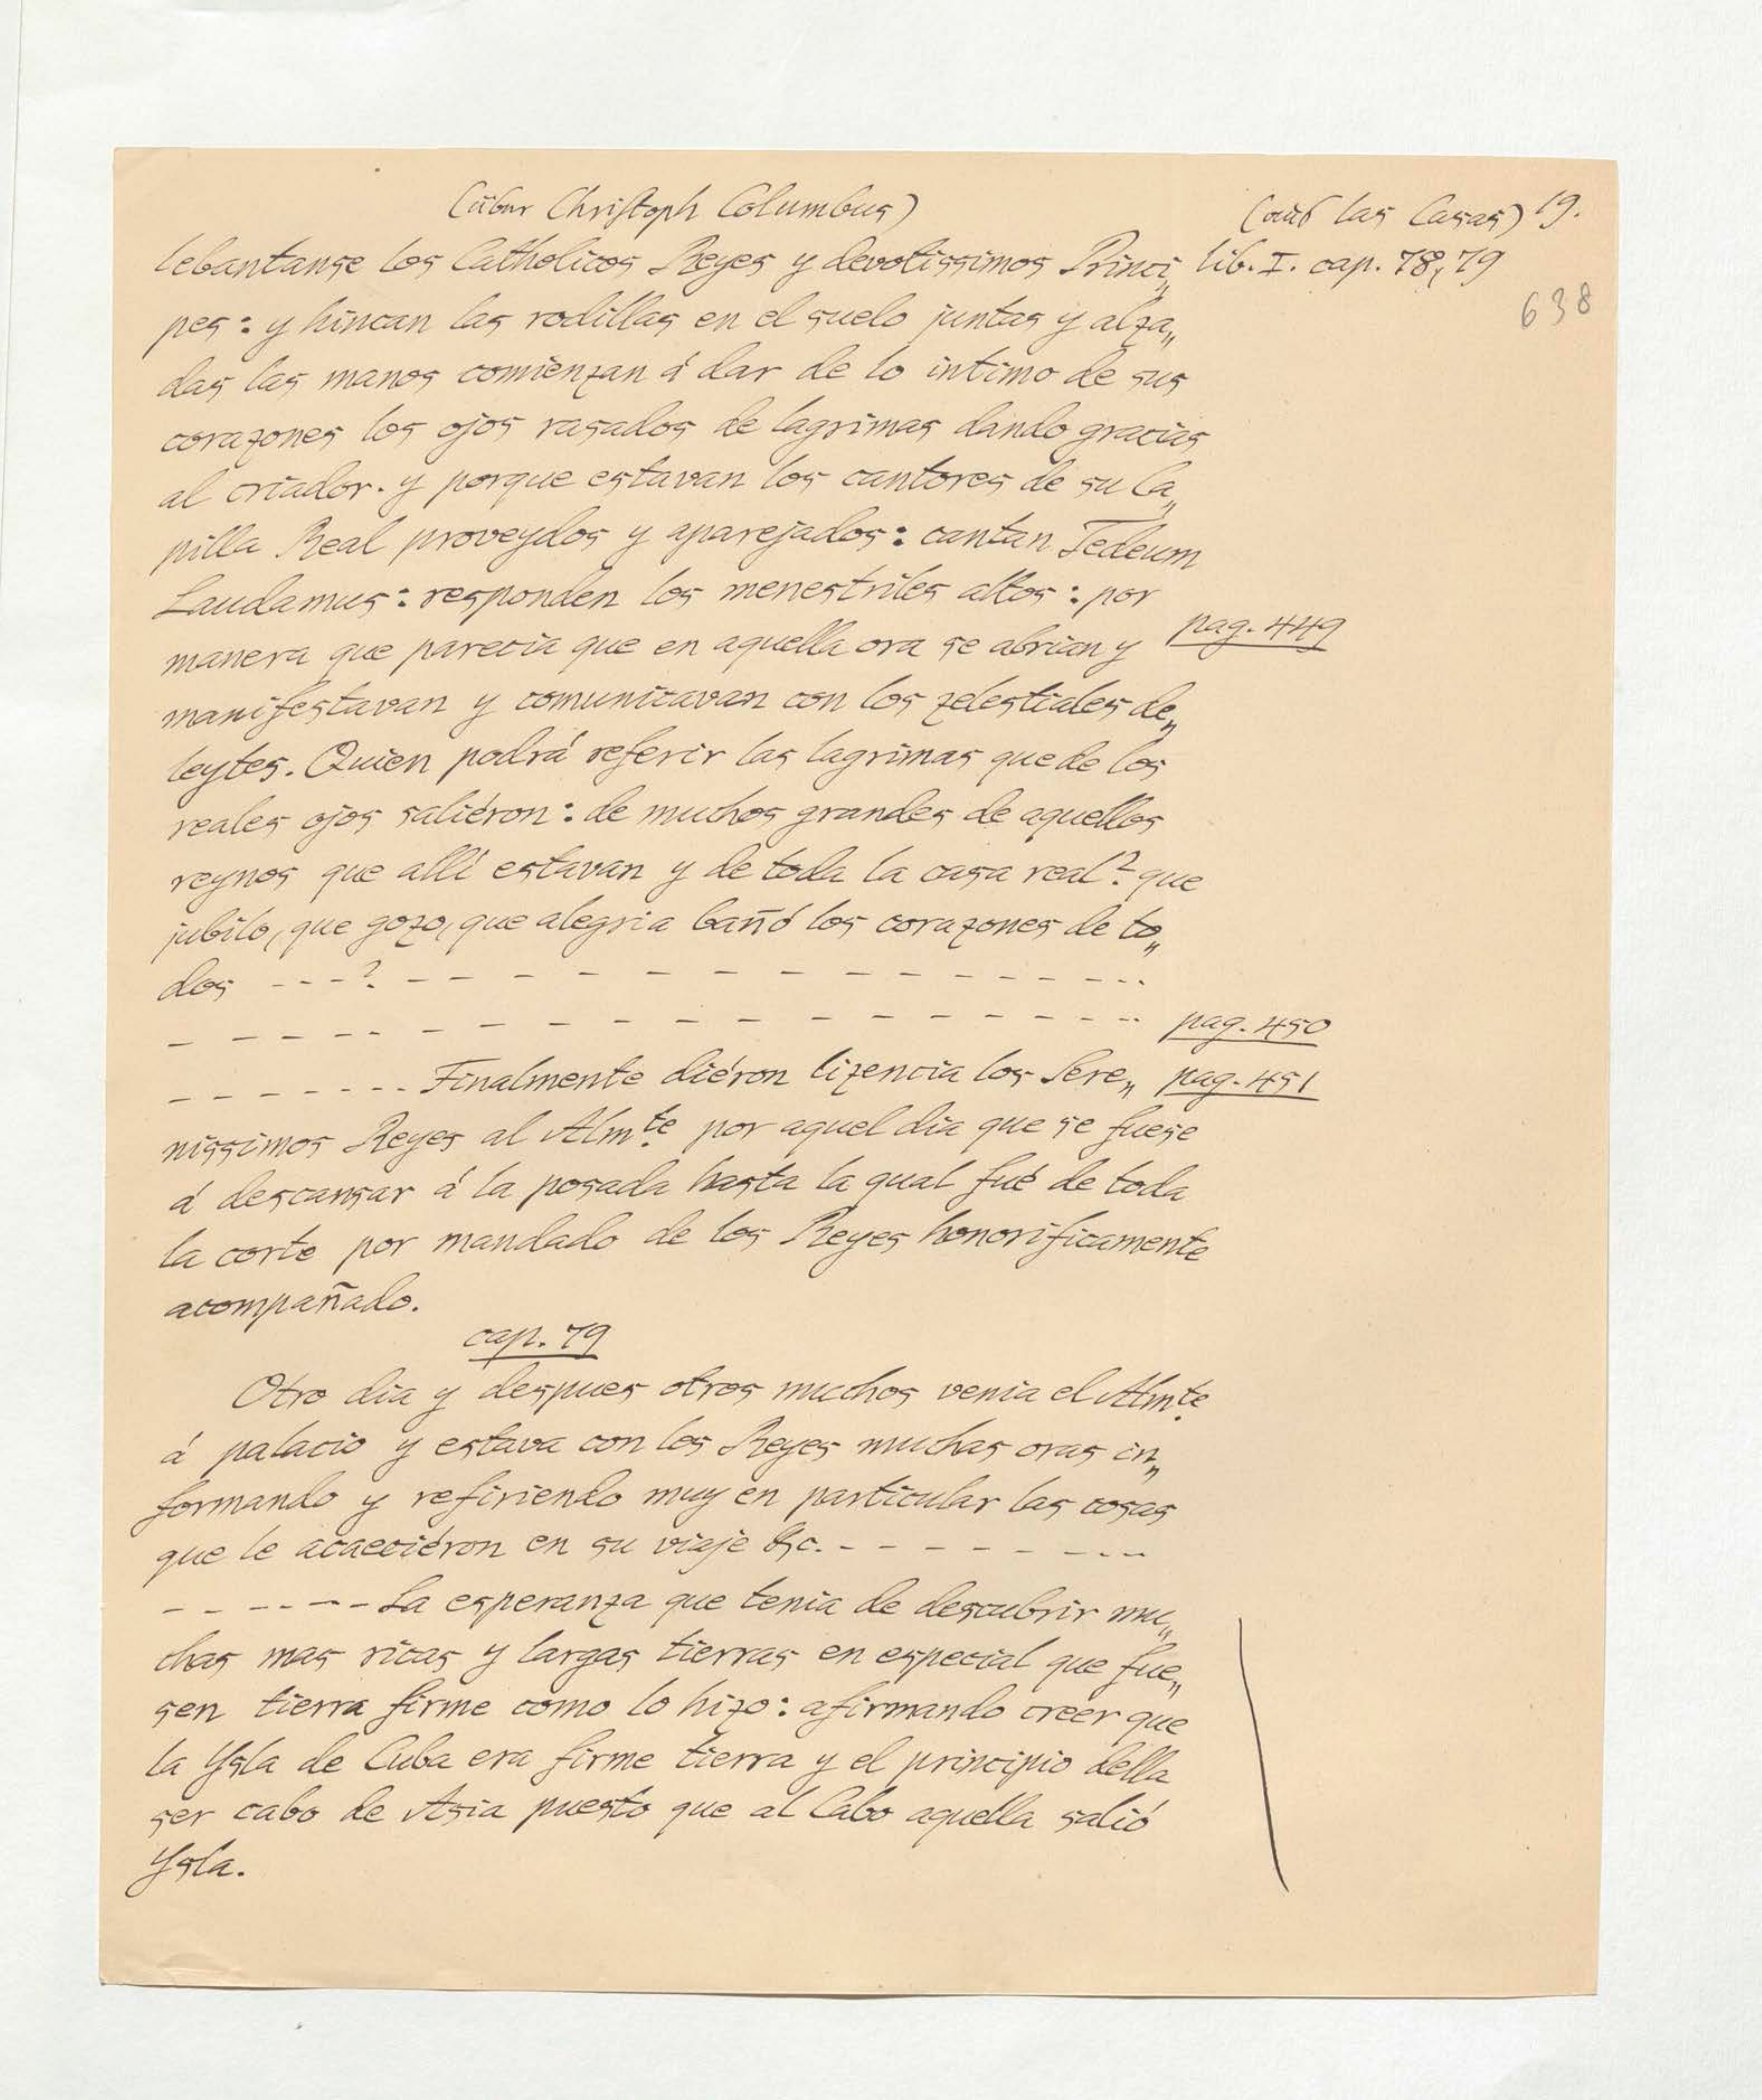 (über Christoph Columbus)
(aus las Casas) 19.
lebantanse los Catholicos Reyes y devotissimos Princi„
lib. I. cap. 78, 79
638
pes: y hincan las rodillas en el suelo juntas y alza„
das las manos comienzan á dar de lo intimo de sus
corazones los ojos rasados de lagrimas dando gracias
al criador. y porque estavan los cantores de su Ca„
pilla Real proveydos y aparejados: cantan Tedeum
Laudamus: responden los menestriles altos: por
manera que parecia que en aquella ora se abrian y
pag. 449
manifestavan y comunicavan con los zelestiales de„
leytes. Quien podrá referir las lagrimas que de los
reales ojos saliéron: de muchos grandes de aquellos
reynos que allí estavan y de toda la casa real? que
jubilo, que gozo, que alegria bañó los corazones de to„
dos - - - ? - - - - - - - - - - - - - -
- - - - - - - - - - - - - - - - - - pag. 450
- - - - - - - Finalmente diéron lizencia los Sere„ pag. 451
nissimos Reyes al Almte por aquel dia que se fuese
á descansar á la posada hasta la qual fué de toda
la corte por mandado de los Reyes honorificamente
acompañado.
cap. 79
Otro dia y despues otros muchos venia el Almte
á palacio y estava con los Reyes muchas oras in„
formando y refiriendo muy en particular las cosas
que le acaeciéron en su viaje &c. - - - - - - - -
- - - - - - - La esperanza que tenia de descubrir mu„
chas mas ricas y largas tierras en especial que fue„
sen tierra firme como lo hizo: afirmando creer que
la Ysla de Cuba era firme tierra y el principio della
ser cabo de Asia puesto que al Cabo aquella salió
Ysla.